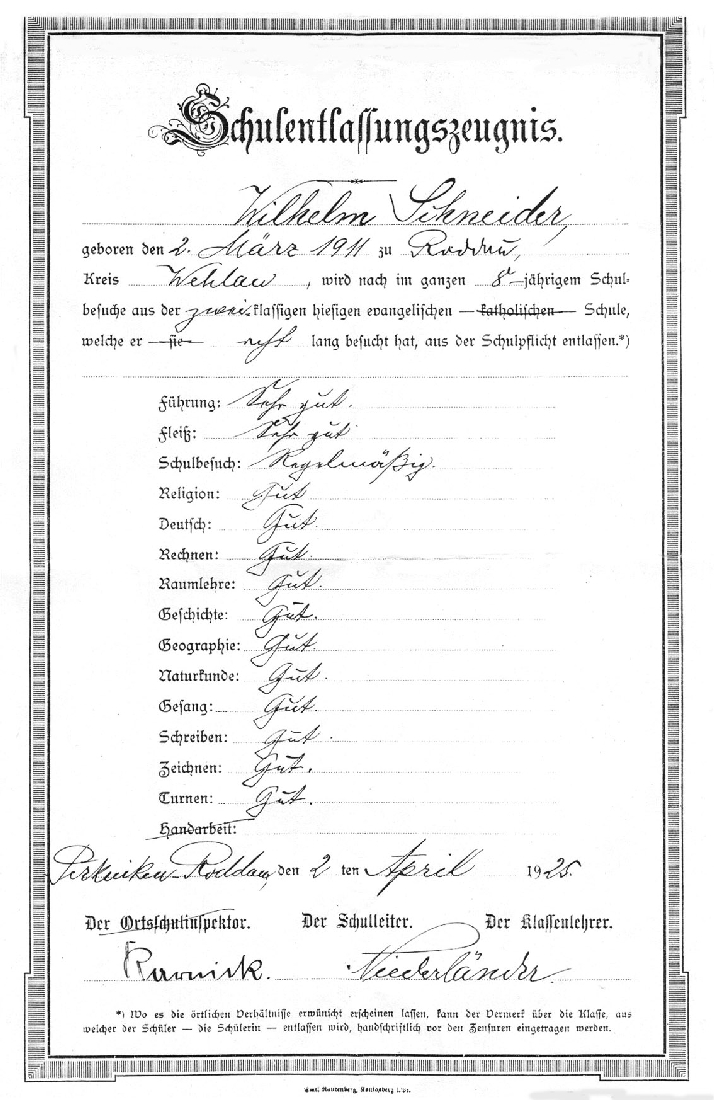 Schulentlassungszeugnis.
Wilhelm Schneider,
geboren den 2. März 1911 zu Roddau,
Kreis Wehlau, wird nach im ganzen 8-jährigem Schul-
besuche aus der zweiklassigen hiesigen evangelischen — katholischen — Schule,
welche er — sie lang besucht hat, aus der Schulpflicht entlassen.*)
Führung: Sehr gut.
Fleiß: Sehr gut
Schulbesuch: Regelmäßig.
Religion: Gut
Deutsch: Gut
Rechnen: Gut.
Raumlehre: Gut.
Geschichte: Gut.
Geographie: Gut
Naturkunde: Gut.
Gesang: Gut.
Schreiben: Gut.
Zeichnen: Gut.
Turnen: Gut.
Handarbeit:
Perkuiken-Roddau, den 2 ten April 1925.
Der Ortsschulinspektor. Der Schulleiter. Der Klassenlehrer.
Niederländer.
*) Wo es die örtlichen Verhältnisse erwünscht erscheinen lassen, kann der Vermerk über die Klasse, aus
welcher der Schüler — die Schülerin — entlassen wird, handschriftlich vor den Zensuren eingetragen werden.
Rautenberg, Königsberg i. Pr.